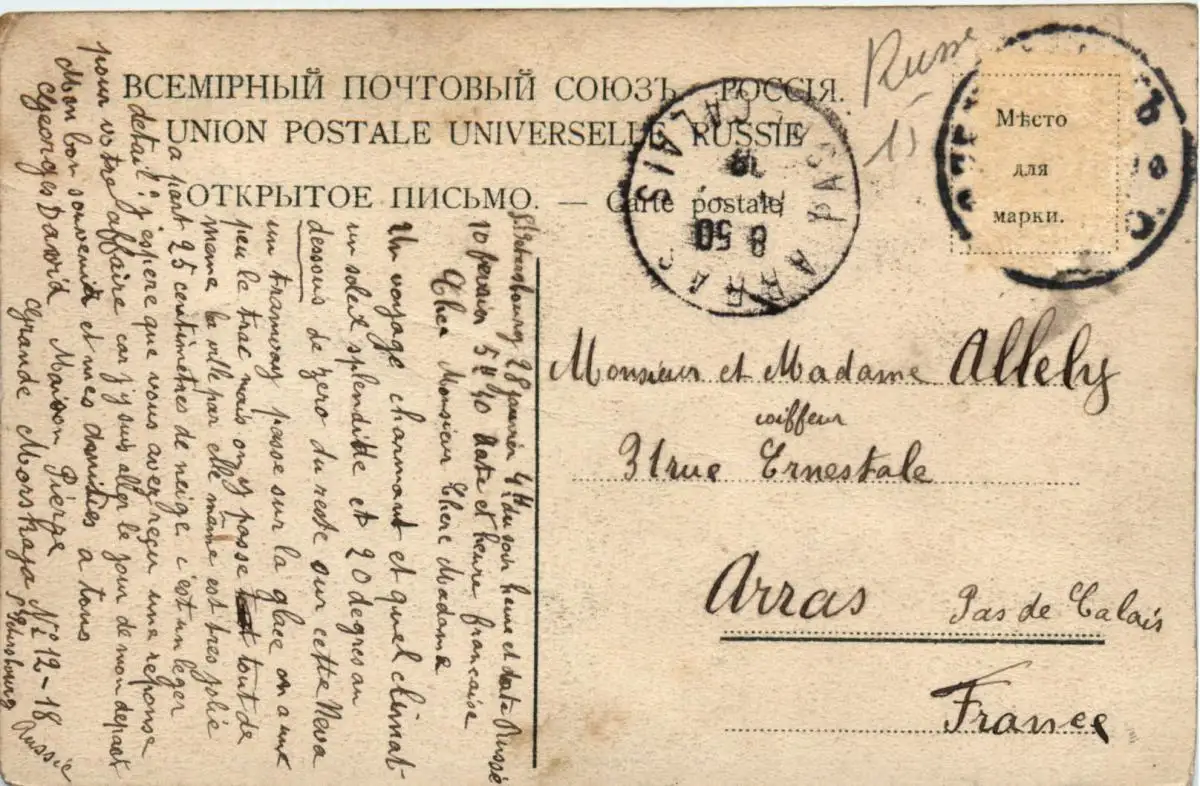 ВСЕМІРНЫЙ ПОЧТОВЫЙ СОЮЗЪ. РОССІЯ.
UNION POSTALE UNIVERSELLE RUSSIE
ОТКРЫТОЕ ПИСЬМО. — Carte postale
Russe
15
Мѣсто
для
марки.
ARRAS
PAS DE CALAIS
8 50
Monsieur et Madame Allely
coiffeur
31 rue Ernestale
Arras Pas de Calais
France
St Petersbourg 28 janvier 4H du soir heure et date Russe
10 fevrier 5H 40 date et heure francaise
Cher Monsieur Chere Madame
Un voyage charmant et quel climat
un soleil splendide et 20 degres au
dessous de zero du reste sur cette Neva
un tramway passe sur la glace on a un
peu le trac mais on y passe tout de
meme la ville par elle même est tres jolie
a part 25 centimetres de neige c'est un leger
detail j'espere que vous avez reçu une reponse
pour votre affaire car j'y suis aller le jour de mon depart
Mon bon souvenir et mes amities a tous
Georges David Maison Pierre
Grande Morskaja No 12-18
Petersbourg Russie